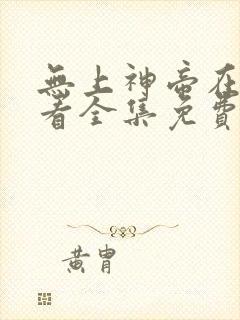 無上神帝在
看全集免費
黃胄